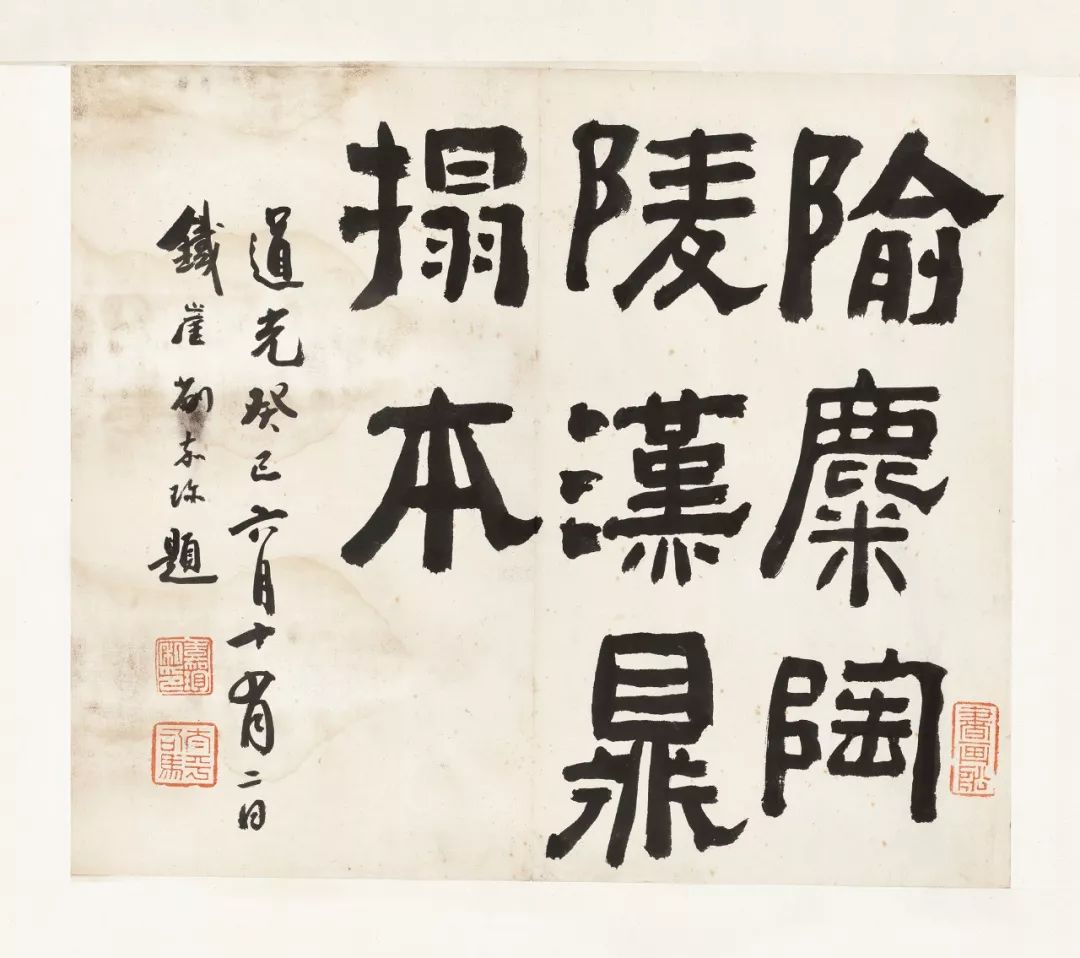 隃麋陶
陵漢鼎
搨本
道光癸巳六月十有二日
鐵崖
題
書画舩